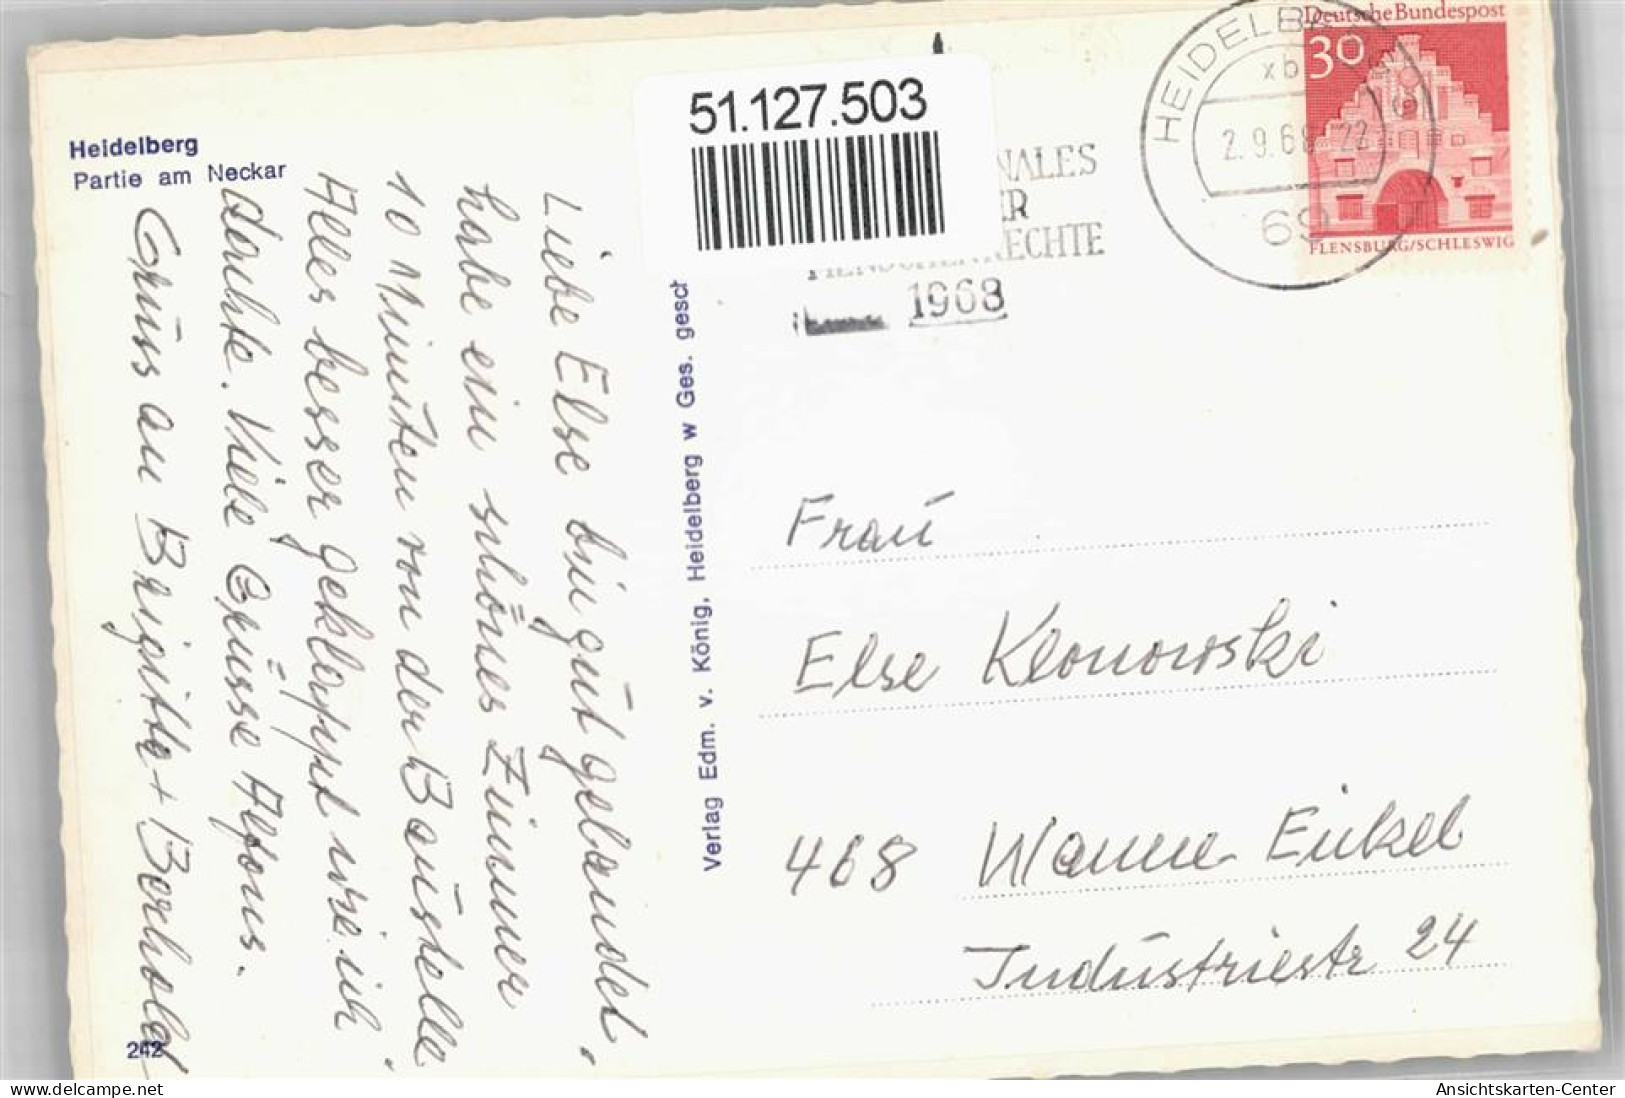 Heidelberg
Partie am Neckar
Liebe Else bin gut gelandet,
habe ein schönes Zimmer
10 Minuten von der Baustelle.
Alles besser geklappt wie ich
dachte. Viele Grüsse Alfons.
Gruss an Brigitte + Berthold
242
Verlag Edm. v. König, Heidelberg w Ges. gesch
51.127.503
NALES
ER
MENSCHENRECHTE
1968
HEIDELB
xb
2.9.68 22
69
Deutsche Bundespost
30
FLENSBURG/SCHLESWIG
Frau
Else Klonowski
468 Wanne Eickel
Industriestr 24
delcampe.net
Ansichtskarten-Center